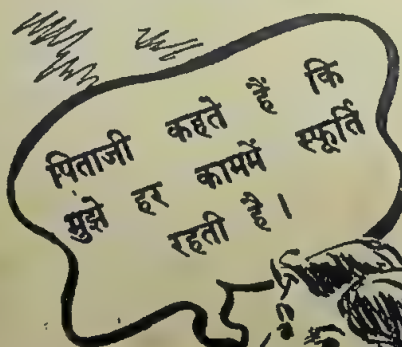 पिताजी कहते हैं कि
मुझे हर काममें स्फूर्ति
रहती है।